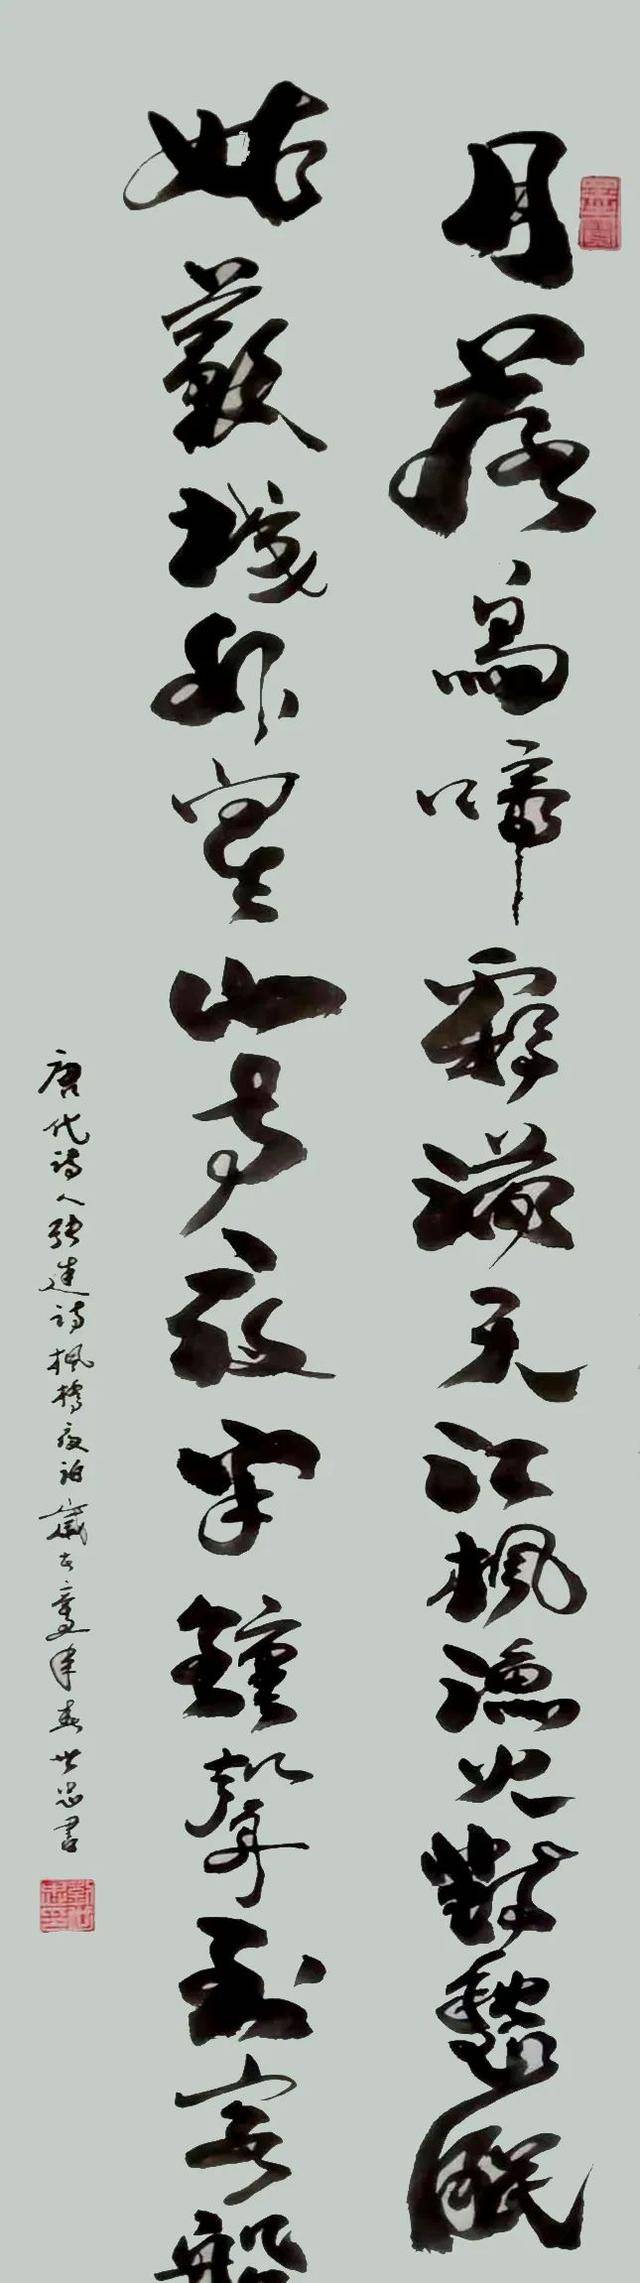 月落烏啼霜滿天江楓漁火對愁眠
姑蘇城外寒山寺夜半鐘聲到客船
唐代詩人張継詩楓橋夜泊歲年春世忠書